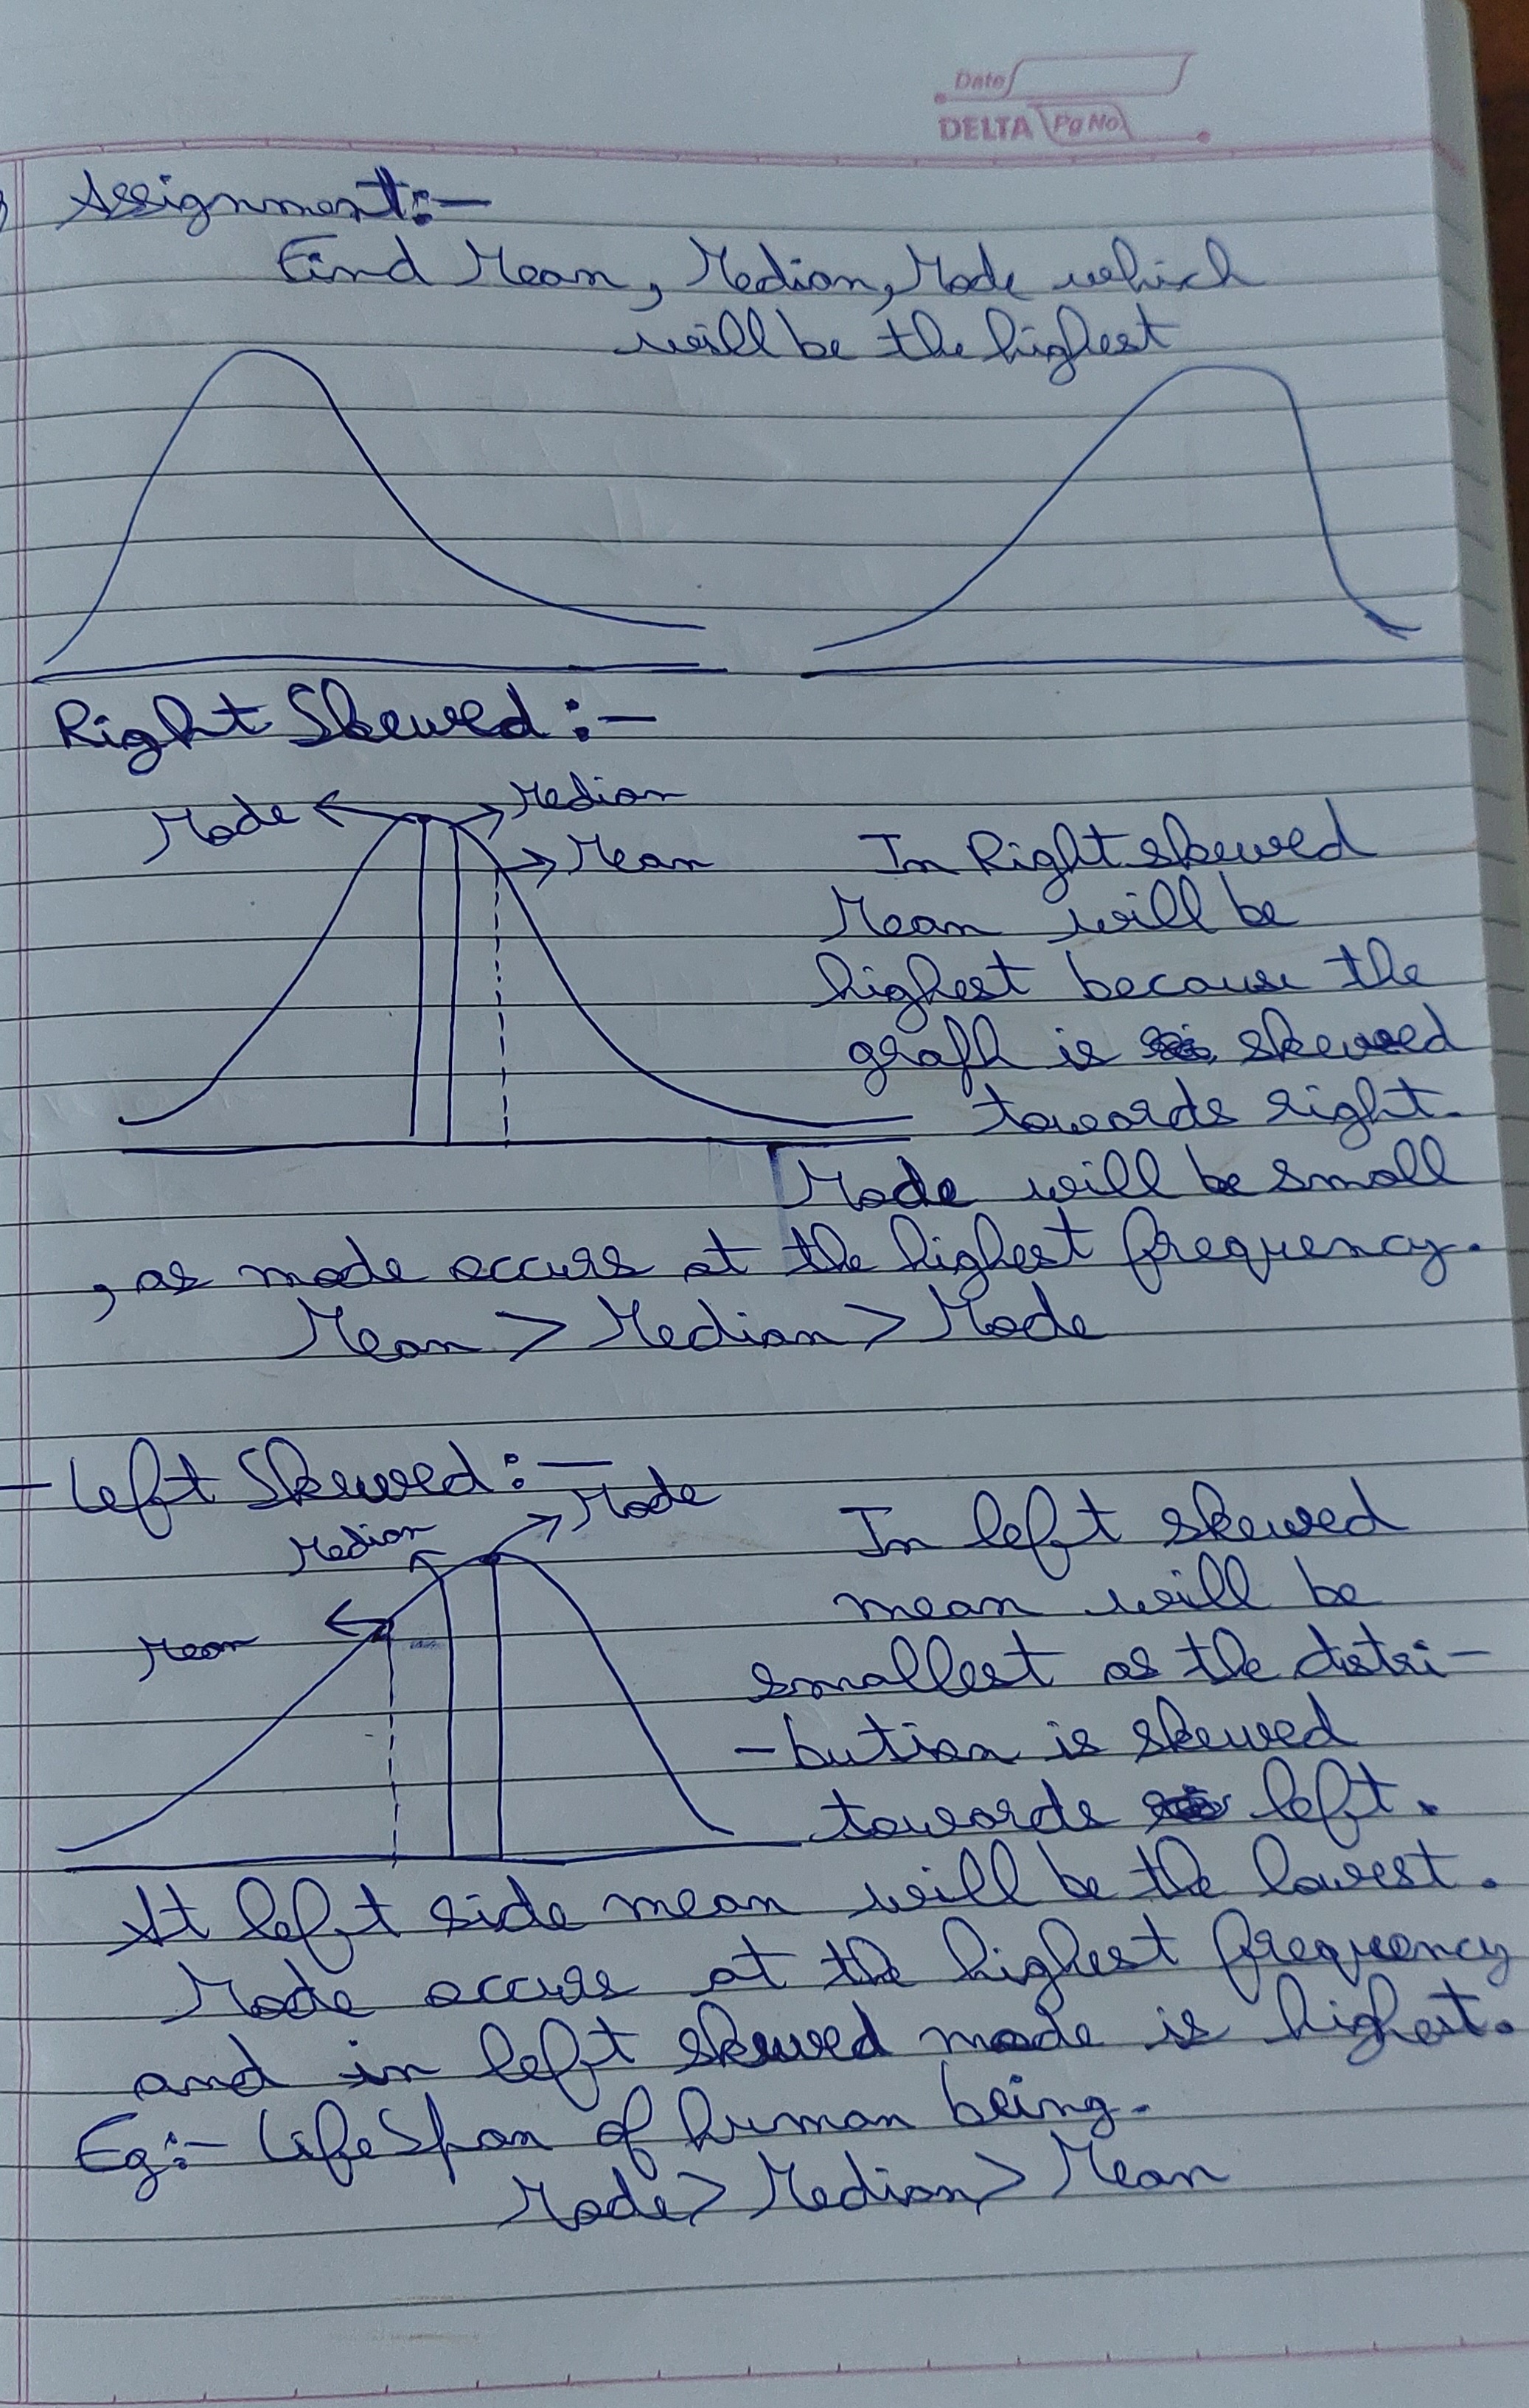 Date
DELTA Pg No
Assignment:-
Find Mean, Median, Mode which
will be the highest
Right Skewed :-
Mode
Median
Mean
In Right skewed
Mean will be
highest because the
graph is skewed
towards right.
Mode will be small
, as mode occurs at the highest frequency.
Mean > Median > Mode
- Left Skewed :-
Mode
Median
Mean
In left skewed
mean will be
smallest as the distri-
-bution is skewed
towards left.
At left side mean will be the lowest.
Mode occurs at the highest frequency
and in left skewed mode is highest.
Eg:- LifeSpan of human being.
Mode > Median > Mean